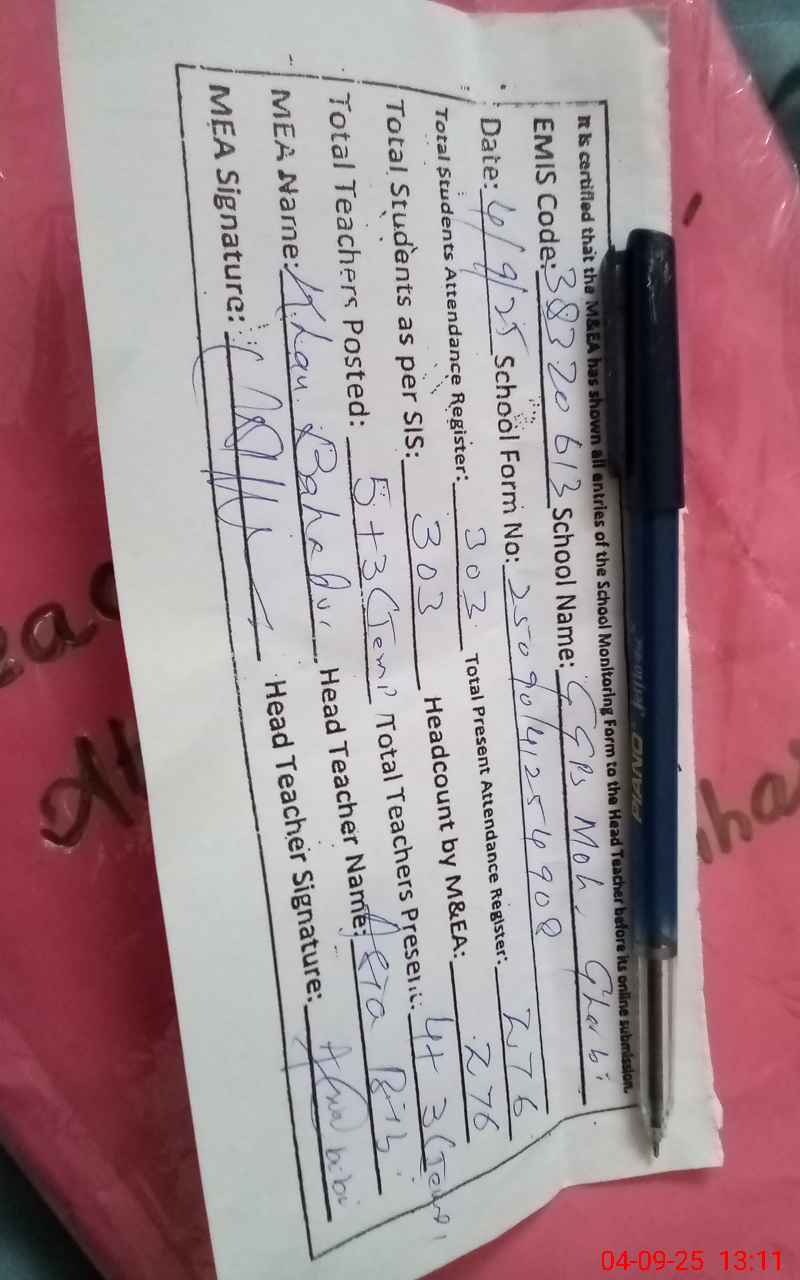 It is certified that the M&EA has shown all entries of the School Monitoring Form to the Head Teacher before its online submission.
EMIS Code: 38320613 School Name: GGPS Moh. Gharbi
Date: 4/9/25 School Form No: 25090414254908
Total Students Attendance Register: 303 Total Present Attendance Register: 276
Total Students as per SIS: 303 Headcount by M&EA: 276
Total Teachers Posted: 5+3(Temp) Total Teachers Present: 4+3(Temp)
MEA Name: Khan Bahadur Head Teacher Name: Bibi
MEA Signature: Head Teacher Signature: bibi
PIANO
04-09-25 13:11